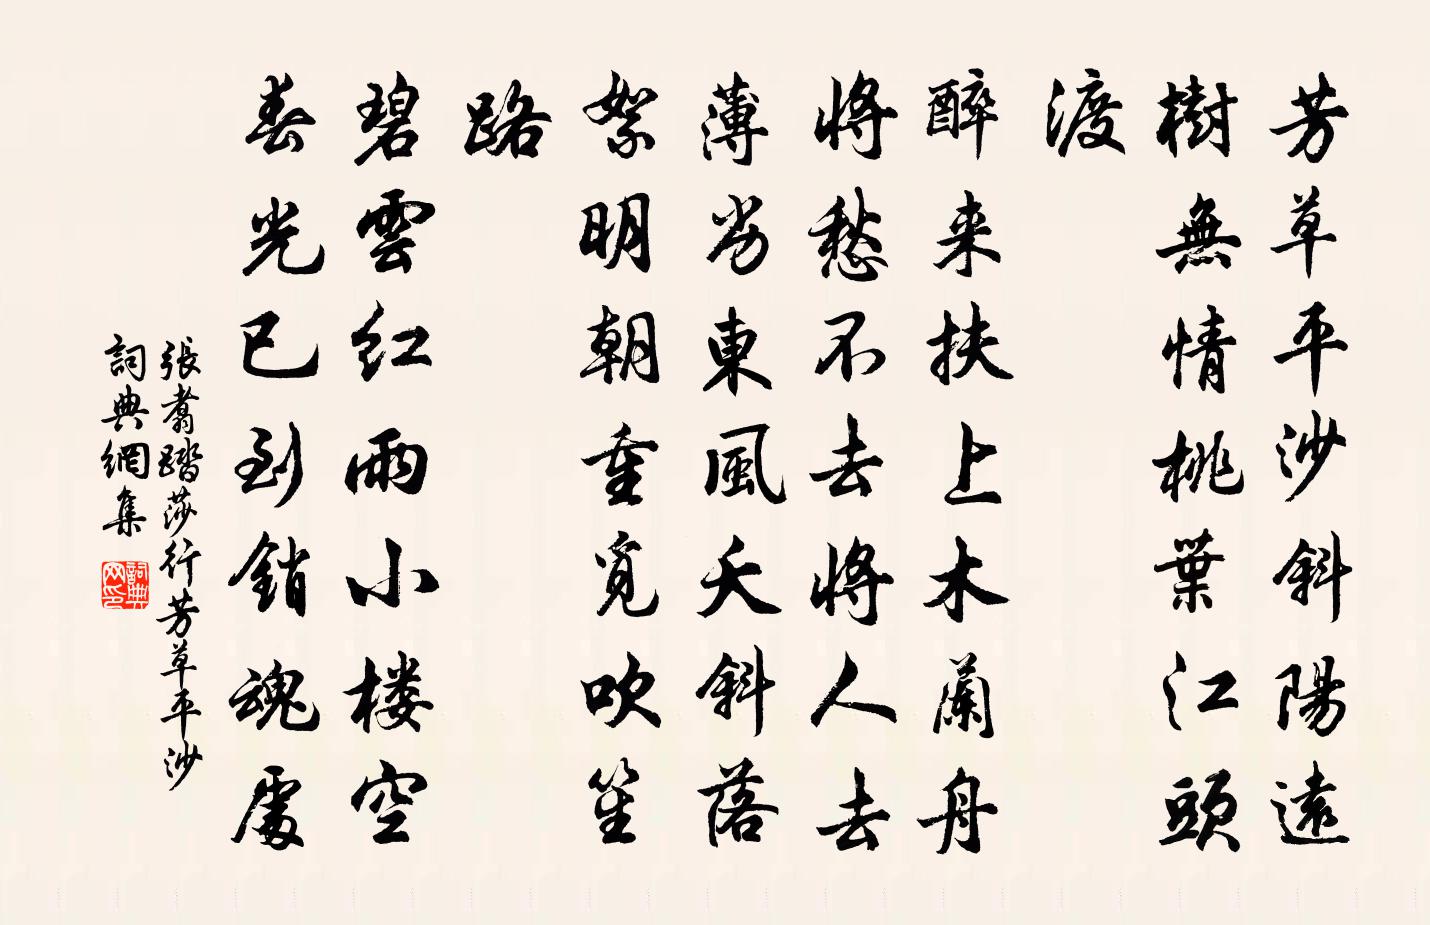 芳草平沙斜陽遠
樹無情桃葉江頭
渡
醉来扶上木蘭舟
將愁不去將人去
薄劣東風夭斜落
絮明朝重覓吹笙
路
碧雲红雨小楼空
春光已到銷魂處
張翥踏莎行芳草平沙
詞典網集
詞典网印